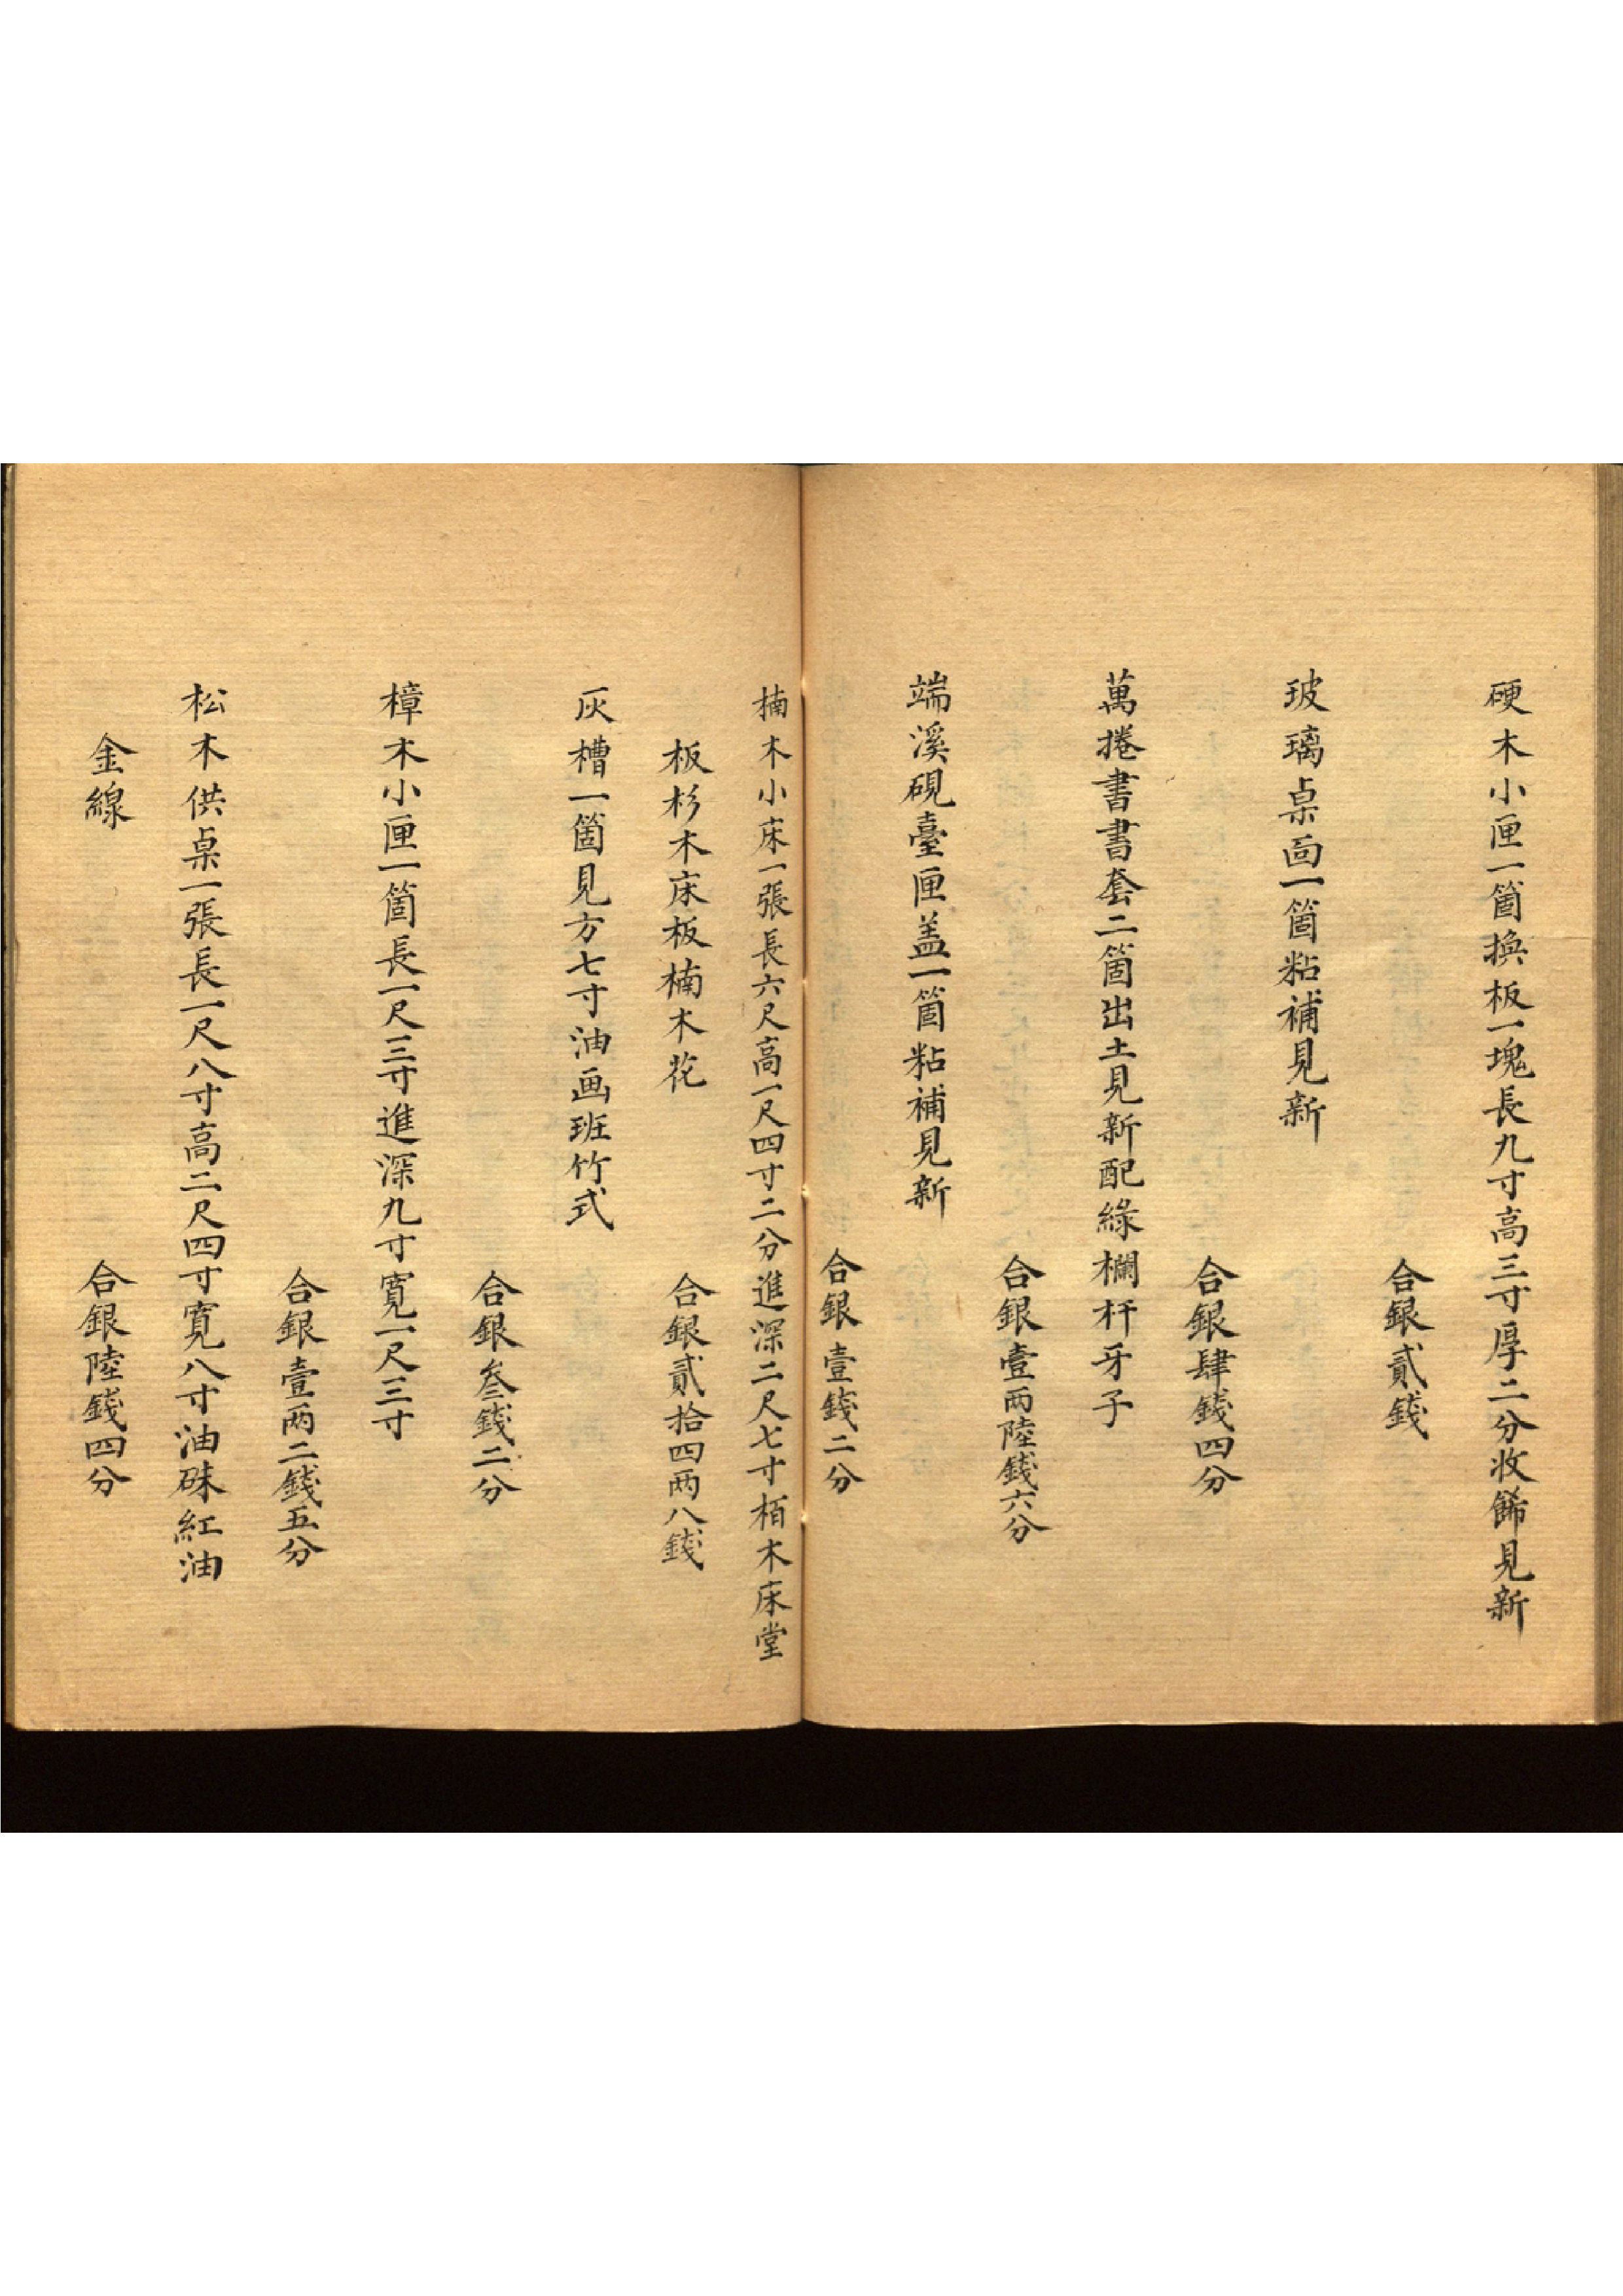 硬木小匣一箇換板一塊長九寸高三寸厚二分收餙見新
合銀貳錢
玻璃桌面一箇粘補見新
合銀肆錢四分
萬捲書書套二箇出土見新配綠欄杆牙子
合銀壹兩陸錢六分
端溪硯臺匣盖一箇粘補見新
合銀壹錢二分
楠木小床一張長六尺高一尺四寸二分進深二尺七寸栢木床堂
板杉木床板楠木花
合銀貳拾四两八錢
灰槽一箇見方七寸油画班竹式
合銀叁錢二分
樟木小匣一箇長一尺三寸進深九寸寬一尺三寸
合銀壹两二錢五分
松木供桌一張長一尺八寸高二尺四寸寬八寸油硃紅油
金線
合銀陸錢四分